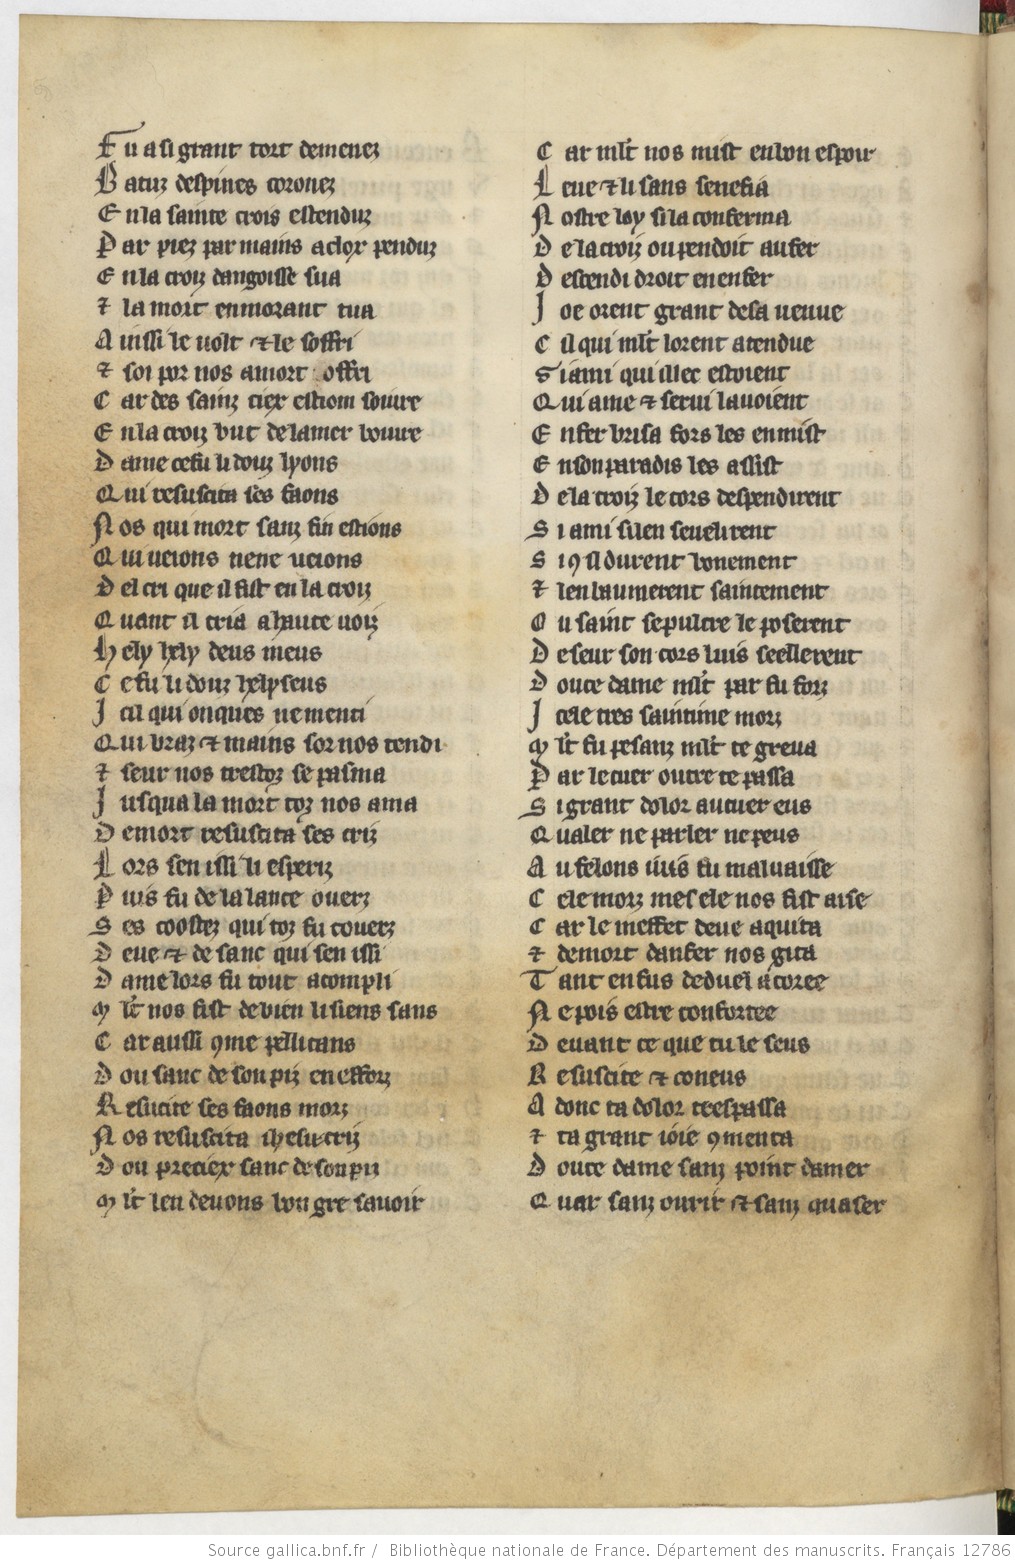 Fu a si grant tort demenez
Batuz despines coronez
En la sainte crois estenduz
Par piez par mains a clox penduz
En la croiz dangoisse sua
⁊ la mort en morant tua
Auissi le volt ⁊ le soffri
⁊ soi por nos a mort offri
Car des sainz ciex estiom souire
En la croiz but de lamer bouire
Dame ce fu li douz lyons
Qui resuscita ses faons
Nos qui mort sanz fin estions
Qui veions ne ne veions
Del cri que il fist en la croiz
Quant il cria a haute voiz
Hely hely deus meus
Ce fu li douz helyseus
Icil qui onques ne menti
Qui braz ⁊ mains sor nos tendi
⁊ seur nos trestoz se pasma
Jusqua la mort toz nos ama
De mort resuscita ses criz
Lors sen issi li esperiz
Puis fu de la lance overz
Ses costez qui toz fu coverz
Deve ⁊ de sanc qui sen issi
Dame lors fu tout acompli
Ml̃t nos fist de bien li siens sans
Car aussi ꝯme pellicans
Dou sanc de son piz en efforz
Resucite ses faons morz
Nos resuscita ihesucriz
Dou preciex sanc de son piz
Ml̃t len devons bon gre savoir
Car ml̃t nos mist en bon espoir
Leve ⁊ li sans senefia
Nostre loy si la conferma
De la croiz ou pendoit au fer
Descendi droit en enfer
Joe orent grant de sa venue
Cil qui ml̃t lorent atendue
Si ami qui illec estoient
Qui ame ⁊ servi lavoient
Enfer brisa fors les en mist
En son paradis les assist
De la croiz le cors despendirent
Si ami si len sevelirent
Si ꝯ il durent bonement
⁊ len baumerent saintement
Ou saint sepulcre le poserent
Deseur son cors luis seellerent
Douce dame ml̃t par fu forz
Icele tres saintime morz
Ml̃t fu pesanz ml̃t te greva
Par le cuer outre te passa
Si grant dolor au cuer eus
Qualer ne parler ne peus
Au felons iuis fu malvaisse
Cele morz mes ele nos fist aise
Car le meffet deve aquita
⁊ de mort danfer nos gita
Tant en fus de duel acoree
Ne pois estre confortee
Devant ce que tu le seus
Resuscite ⁊ coneus
Adonc ta dolor trespassa
⁊ ta grant ioie ꝯmenca
Douce dame sanz point damer
Quar sanz ovrir ⁊ sanz quaser
Source gallica.bnf.fr / Bibliothèque nationale de France. Département des manuscrits. Français 12786